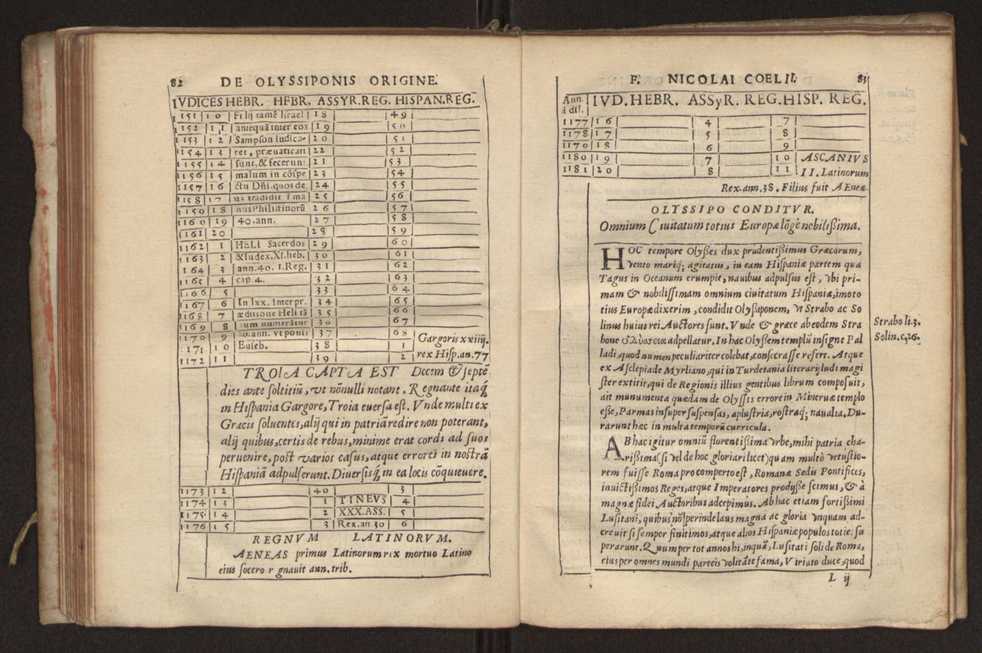 82 DE OLYSSIPONIS ORIGINE.
IVDICES HEBR. HEBR. ASSYR.REG. HISPAN.REG.
1151 10 Filij tamē Israel 18 49
1152 11 antequā inter eos 19 50
1153 12 Sampson iudica- 20 51
1154 13 ret, præuatican 22 52
1155 14 sunt, & fecerunt 21 53
1156 15 malum in cōspe 23 54
1157 16 ctu Dñi. quos de, 24 55
1158 17 us tradidit ī ma 25 56
1150 18 nus Philistinorū 26 57
1160 19 40. ann. 27 58
1161 20 28 59
1162 1 HELI Sacerdos 29 60
1163 2 & Iudex. XI. heb. 30 61
1164 3 ann. 40. 1. Reg. 31 62
1165 4 cap. 4. 32 63
1166 5 33 64
1167 6 In lxx. Interpr. 34 65
1168 7 æditione Heli tā 35 66
1169 8 tum numerātur 36 67
1170 9 20. ann. vt ponit 37 68 Gargoris xxiiij.
171 10 Euseb. 38 1 rex Hisp. an. 77
1172 11 39 2
TROIA CAPTA EST Decem & septē
dies ante solstitiū, vt nōnulli notant. Regnante itaq;
in Hispania Gargore, Troia euersa est. Vnde multi ex
Græcis soluentes, alij qui in patriā redire non poterant,
alij quibus, certis de rebus, minime erat cordi ad suos
peruenire, post varios casus, atque errores in nostrā
Hispaniā adpulserunt. Diuersisq; in ea locis cōquieuere.
1173 12 40 3
1174 13 1 TINEVS 4
1175 14 2 XXX.ASS. 5
1176 15 3 Rex. an. 30 6
REGNVM LATINORVM.
AENEAS primus Latinorum rex mortuo Latino
eius socero regnauit ann. trib.
F. NICOLAI COELII. 83
Ann. à dil. IVD. HEBR. ASSyR. REG. HISP. REG.
1177 16 4 7
1178 17 5 8
1170 18 6 9
1180 19 7 10 ASCANIVS
1181 20 8 11 II. Latinorum
Rex. ann. 38. Filius fuit AEneæ
OLYSSIPO CONDITVR.
Omnium Ciuitatum totius Europæ lōgè nobilißima.
HOC tempore Olyßes dux prudentißimus Græcorum,
vento mariq; agitatus, in eam Hispaniæ partem qua
Tagus in Oceanum erumpit, nauibus adpulsus est, vbi pri-
mam & nobilissimam omnium ciuitatum Hispaniæ, imo to
tius Europæ dixerim, condidit Olyßiponem, vt Strabo ac So
linus huius rei Auctores sunt. Vnde & græce ab eodem Stra
bone adpellatur. In hac Olyßem templū insigne Pal
ladi, quod numen peculiariter colebat, consecrasse refert. Atque
ex Asclepiade Myrliano, qui in Turdetania literarij ludi magi
ster extitit, qui de Regionis illius gentibus librum composuit,
ait munumenta quædam de Olyssis errore in Mineruæ templo
eße, Parmas insuper suspensas, aplustria, rostraq; naualia, Du-
rarunt hæc in multa temporū curricula.
Strabo li. 3.
Solin. c. 26.
AB hac igitur omniū florentißima vrbe, mihi patria cha-
rißima (si vel de hoc gloriari licet) quam multò vetustio-
rem fuisse Roma pro comperto est, Romanæ Sedis Pontifices,
inuictißimos Reges, atque Imperatores prodÿsse scimus, & à
magnæ fidei Auctoribus adcepimus. Ab hac etiam fortißimi
Lusitani, quibus nō perinde laus magna ac gloria vnquam ad-
creuit si semper finitimos, atque alios Hispaniæ populos toties su
perarunt. Quum per tot annos hi, inquā, Lusitani soli de Roma,
eius per omnes mundi parteis volitāte fama, Viriato duce, quod
L ij